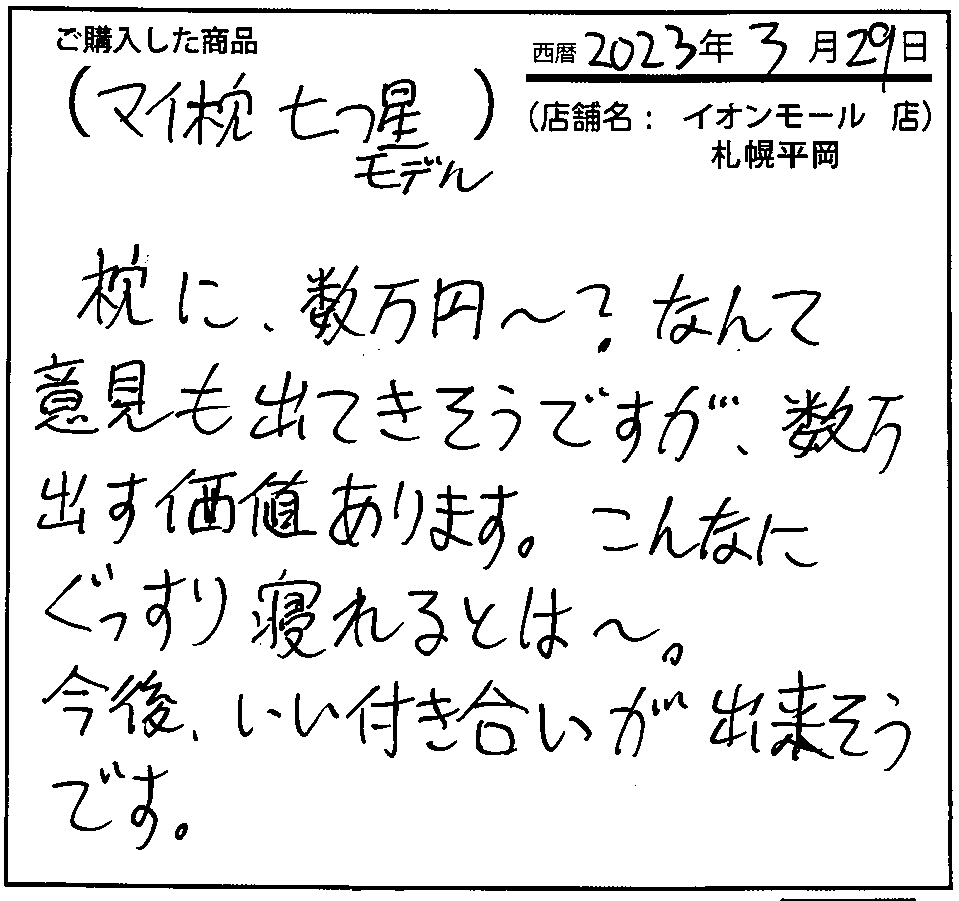 ご購入した商品
西暦 2023年 3月29日
(マイ枕 七つ星)
モデル
(店舗名: イオンモール 店)
札幌平岡
枕に、数万円〜?なんて
意見も出てきそうですが、数万
出す価値あります。こんなに
ぐっすり寝れるとは〜。
今後、いい付き合いが出来そう
です。